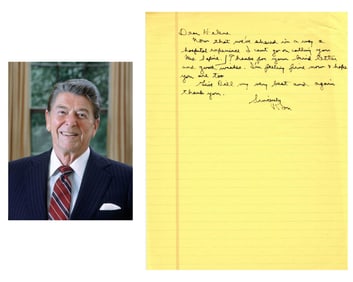 Dear Helene
Now that we've shared in a way a
hospital experience I can't go on calling you
Ms. Sapiro. Thanks for your kind letter
and good wishes. I'm feeling fine now & hope
you are too.
Give Bill my very best and again
thank you.
Sincerely
Ron